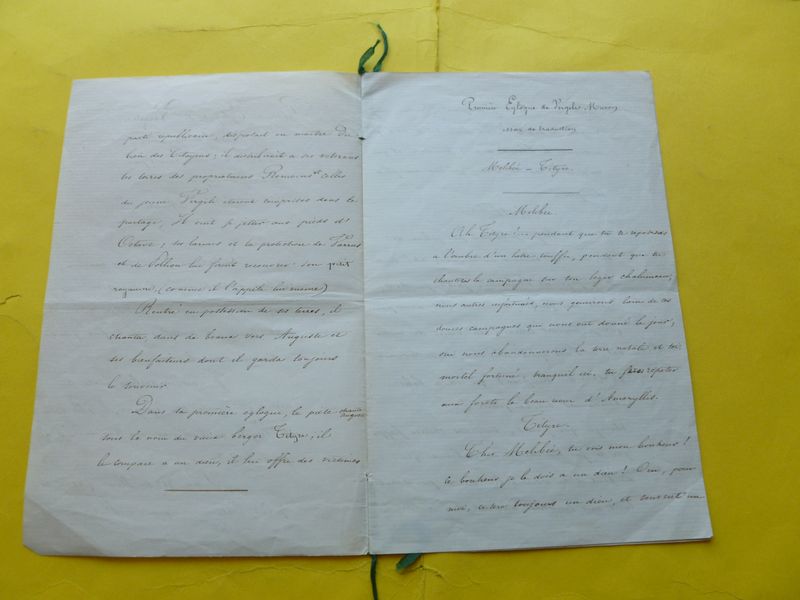 parti républicain, disposait en maître du
bien des Citoyens ; il distribuait a ses vétérans
les terres des propriétaires Romains et celles
du jeune Virgile étaient comprises dans le
partage, Il vint se jetter aux pieds d'
Octave ; ses larmes et la protection de Varus
et de Pollion lui firent recouvrer son petit
royaume, (comme il l'appelle lui même)
Rentré en possession de ses terres, il
chanta, dans de beaux vers Auguste et
ses bienfaiteurs dont il garda toujours
le souvenir
Dans sa première eglogue, le poete chante Auguste
sous le nom du vieux berger Tityre ; il
le compare a un dieu, il lui offre des victimes
Première Eglogue de Virgile Maron
essai de traduction
Melibée – Tityre.
Melibée
Ah Tityre !... pendant que tu te reposes
a l'ombre d'un hêtre touffu, pendant que tu
chantes la campagne sur ton leger chalumeau ;
nous autres infortunés, nous gemirons loin de ces
douces campagnes qui nous ont donné le jour ;
oui nous abandonnerons la terre natale et toi
mortel fortuné, tranquil ici, tu fais répéter
aux forêts le beau nom d'Amaryllis.
Tityre.
Cher Melibée, tu vois mon bonheur !
ce bonheur je le dois a un dieu ! Oui, pour
moi, ce sera toujours un dieu, et souvent un